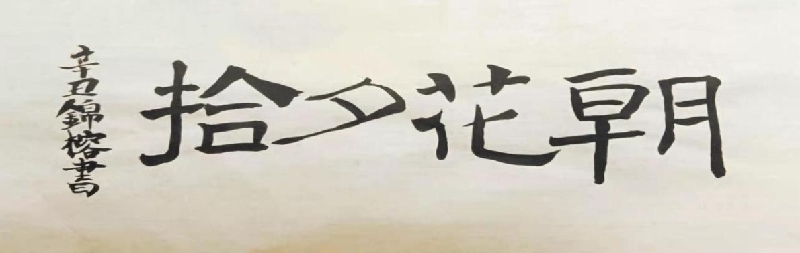 朝花夕拾
辛丑錦榕書